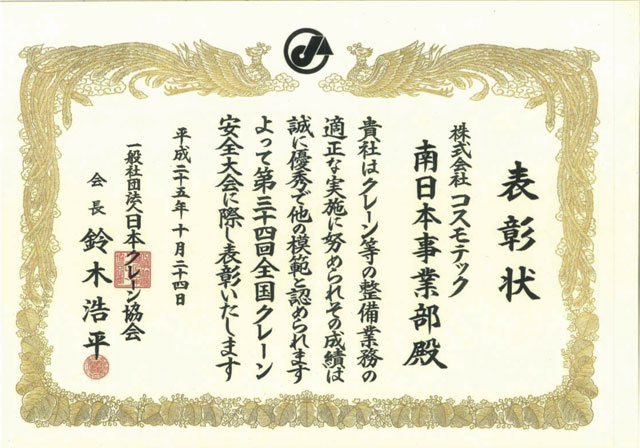 表彰状
株式会社 コスモテック
南日本事業部殿
貴社はクレーン等の整備業務の
適正な実施に努められその成績は
誠に優秀で他の模範と認められます
よって第三十四回全国クレーン
安全大会に際し表彰いたします
平成二十五年十月二十四日
一般社団法人日本クレーン協会
会長 鈴木浩平